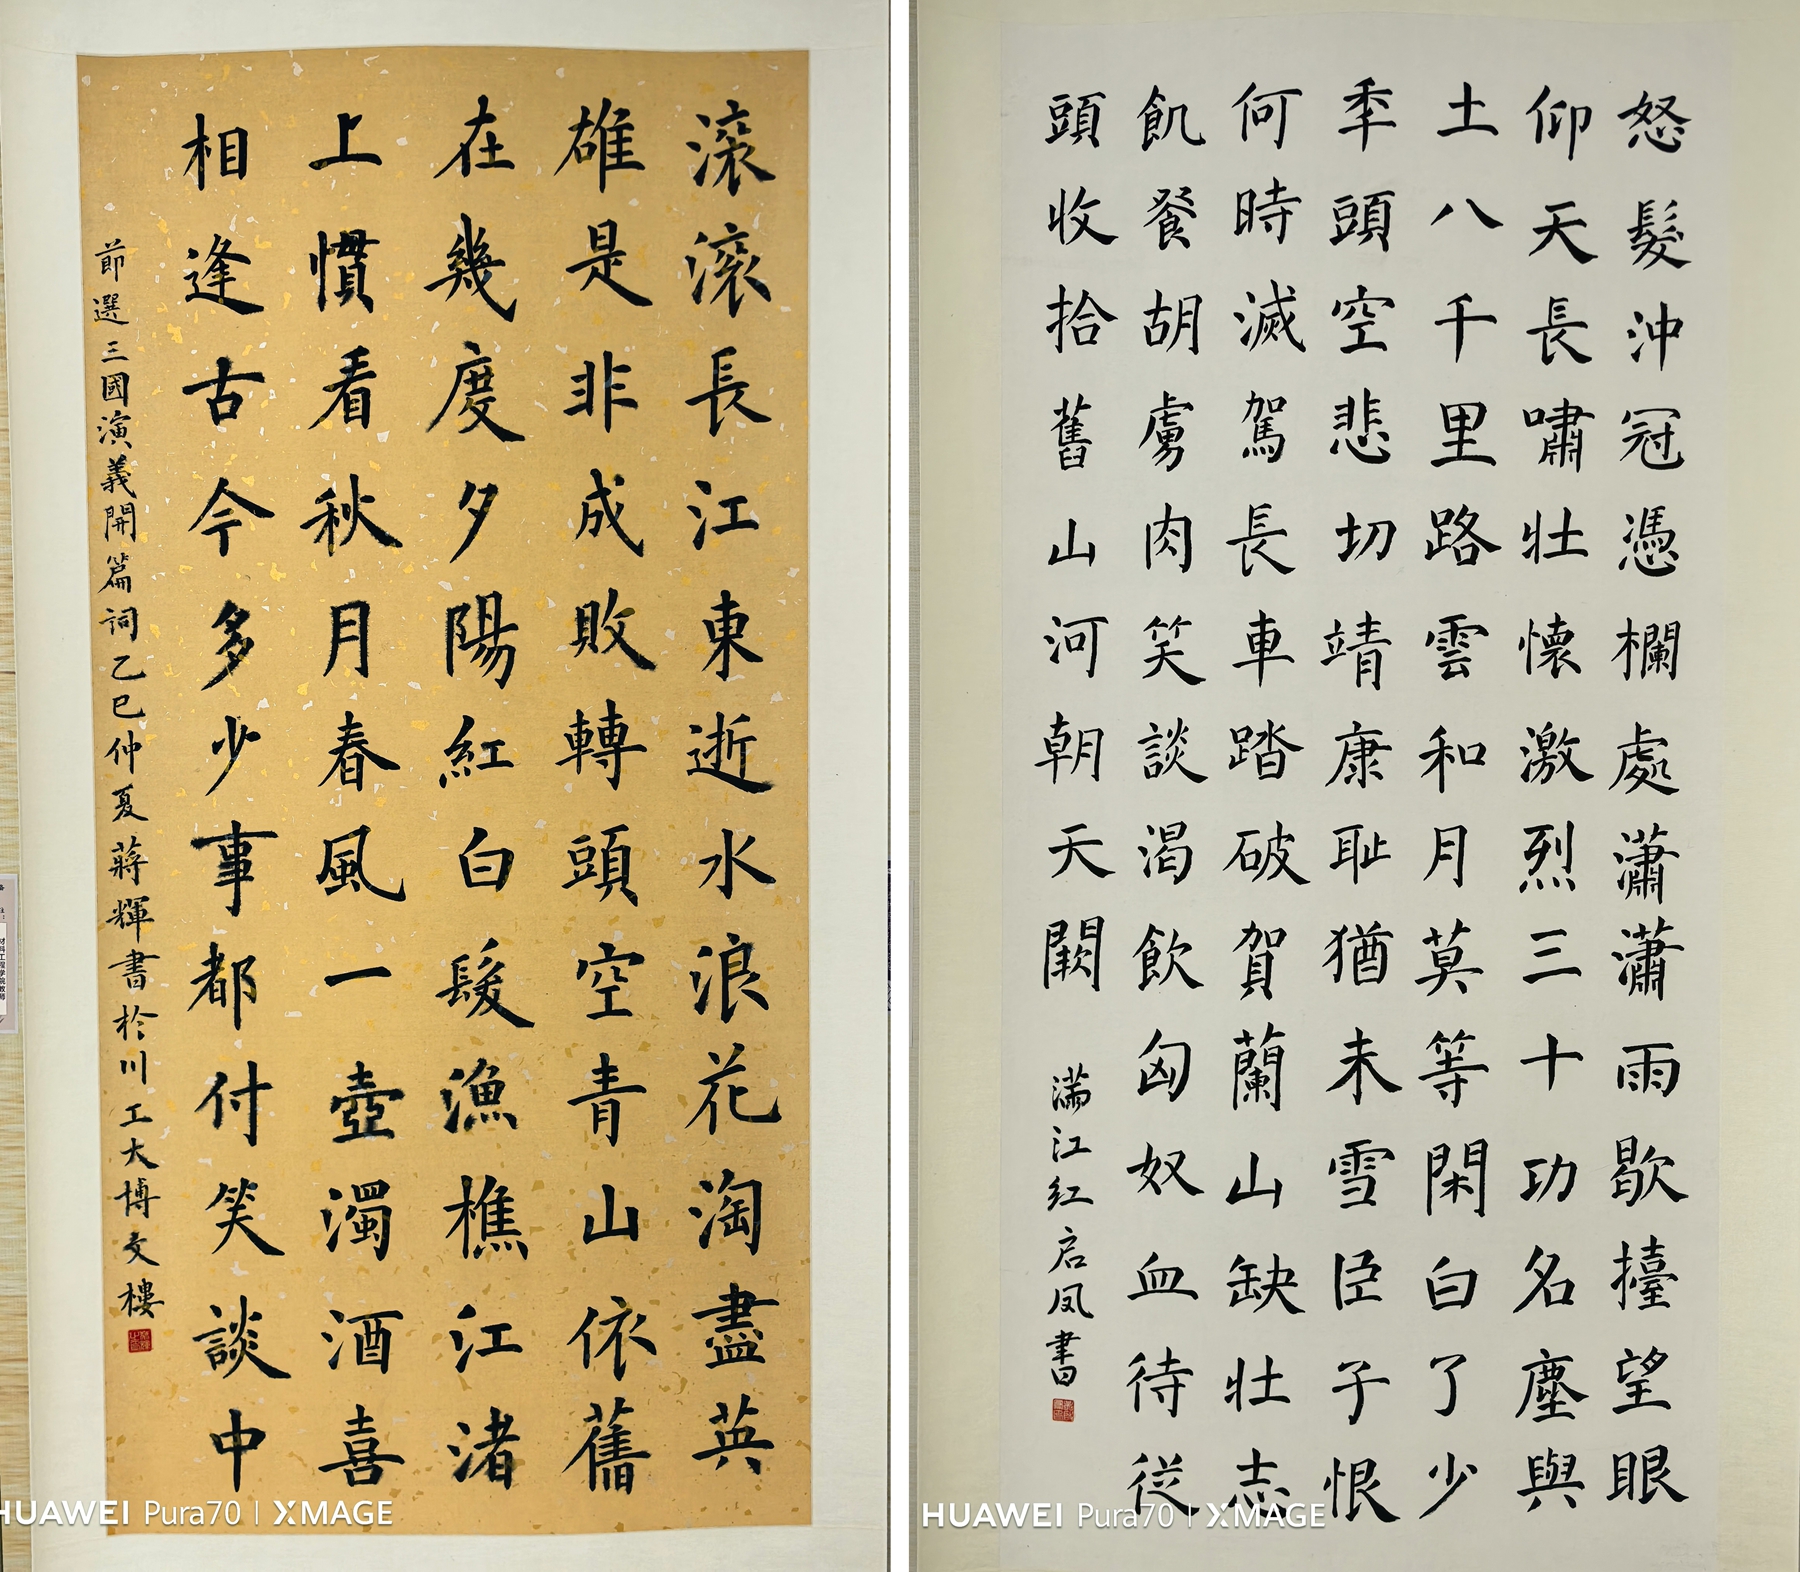 滚滚長江東逝水浪花淘盡英
雄是非成敗轉頭空青山依舊
在幾度夕陽紅白髮漁樵江渚
上慣看秋月春風一壺濁酒喜
相逢古今多少事都付笑談中
節選三國演義開篇詞乙巳仲夏蔣輝書於川工大博文樓
HUAWEI Pura70 | XMAGE
怒髮沖冠憑欄處瀟瀟雨歇擡望眼
仰天長嘯壯懷激烈三十功名塵與
土八千里路雲和月莫等閑白了少
秊頭空悲切靖康耻猶未雪臣子恨
何時滅駕長車踏破賀蘭山缺壯志
飢餐胡虜肉笑談渴飲匈奴血待従
頭收拾舊山河朝天闕
满江红启凤書
HUAWEI Pura70 | XMAGE